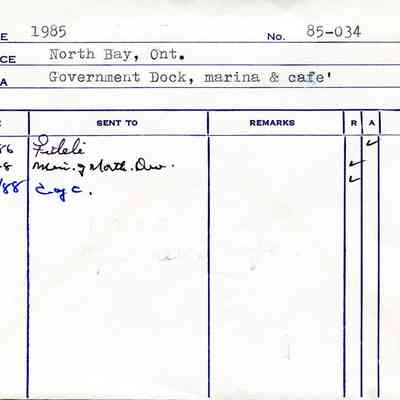 E 1985 No. 85-034
CE North Bay, Ont.
A Government Dock, marina & cafe'
E SENT TO REMARKS R A
86 Fideli ✓
8 Min. of North. Dev. ✓
/88 C of C. ✓